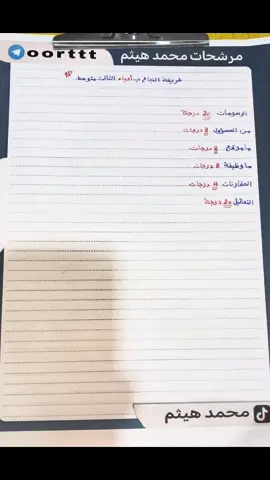 مرشحات محمد هيثم oorttt
طريقة النجاح ب أحياء الثالث متوسط
الرسومات 20 درجة
من المسؤول 8 درجات
ما موقع 8 درجات
ما وظيفة 8 درجات
المقارنات 4 درجات
التعاليل 20 درجة
محمد هيثم